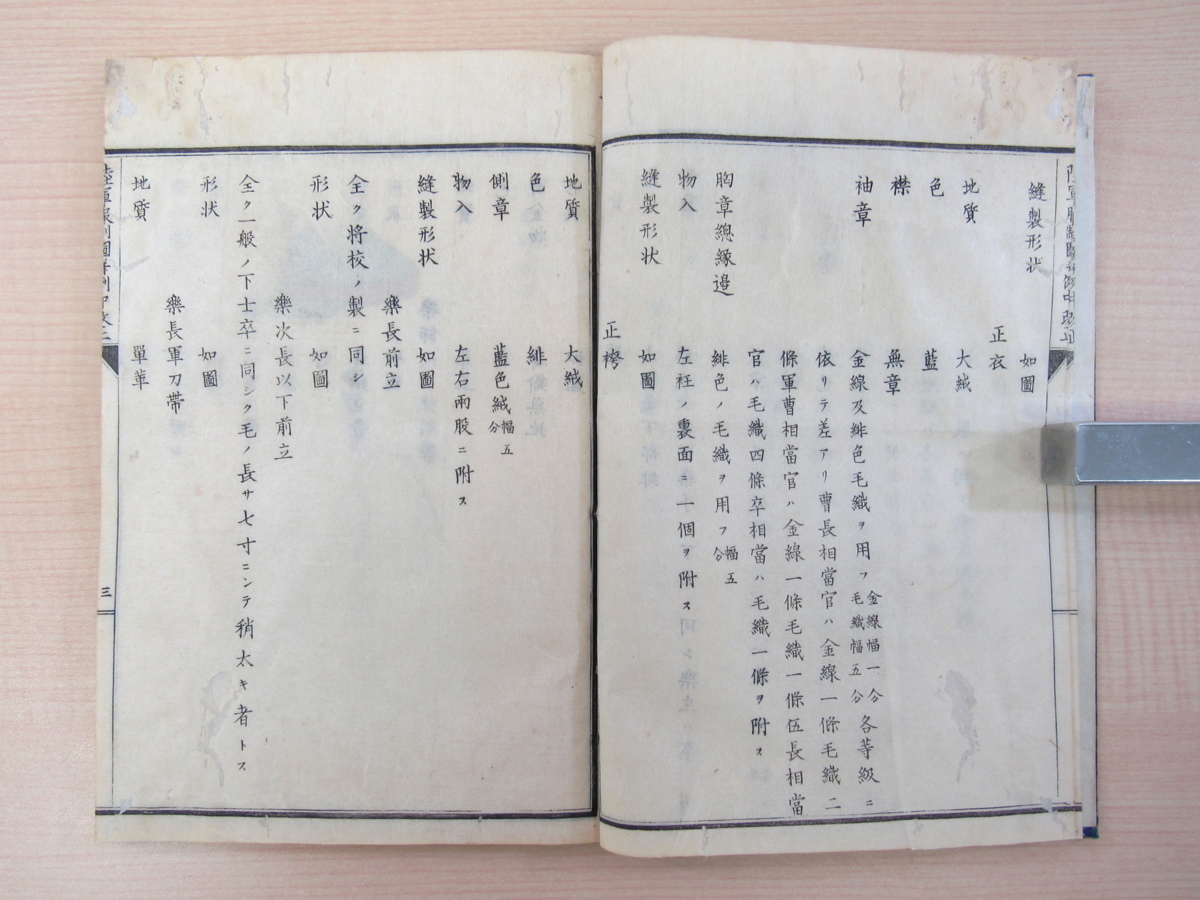 縫製形状　如圖
正衣
地質　大絨
色　藍
襟　無章
袖章　金線及緋色毛織ヲ用フ金線幅一分毛織幅五分各等級ニ
依リテ差アリ曹長相當官ハ金線一條毛織二
條軍曹相當官ハ金線一條毛織一條伍長相當
官ハ毛織四條卒相當ハ毛織一條ヲ附ス
胸章總縁邉　緋色ノ毛織ヲ用フ幅五分
物入　左衽ノ裏面ニ一個ヲ附ス
縫製形状　如圖
正袴
地質　大絨
色　緋
側章　藍色絨幅五分
物入　左右兩股ニ附ス
縫製形状　如圖
樂長前立
全ク将校ノ製ニ同シ
形状　如圖
樂次長以下前立
全ク一般ノ下士卒ニ同シク毛ノ長サ七寸ニンテ稍太キ者トス
形状　如圖
樂長軍刀帶
地質　單革
三